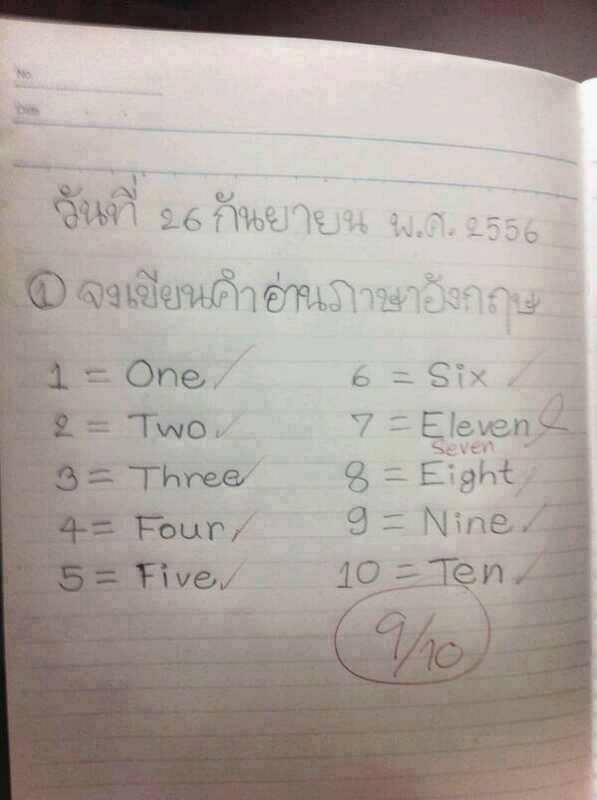 No.
Date
วันที่ 26 กันยายน พ.ศ. 2556
① จงเขียนคำอ่านภาษาอังกฤษ
1 = One
2 = Two
3 = Three
4 = Four
5 = Five
6 = Six
7 = Eleven
Seven
8 = Eight
9 = Nine
10 = Ten
9/10